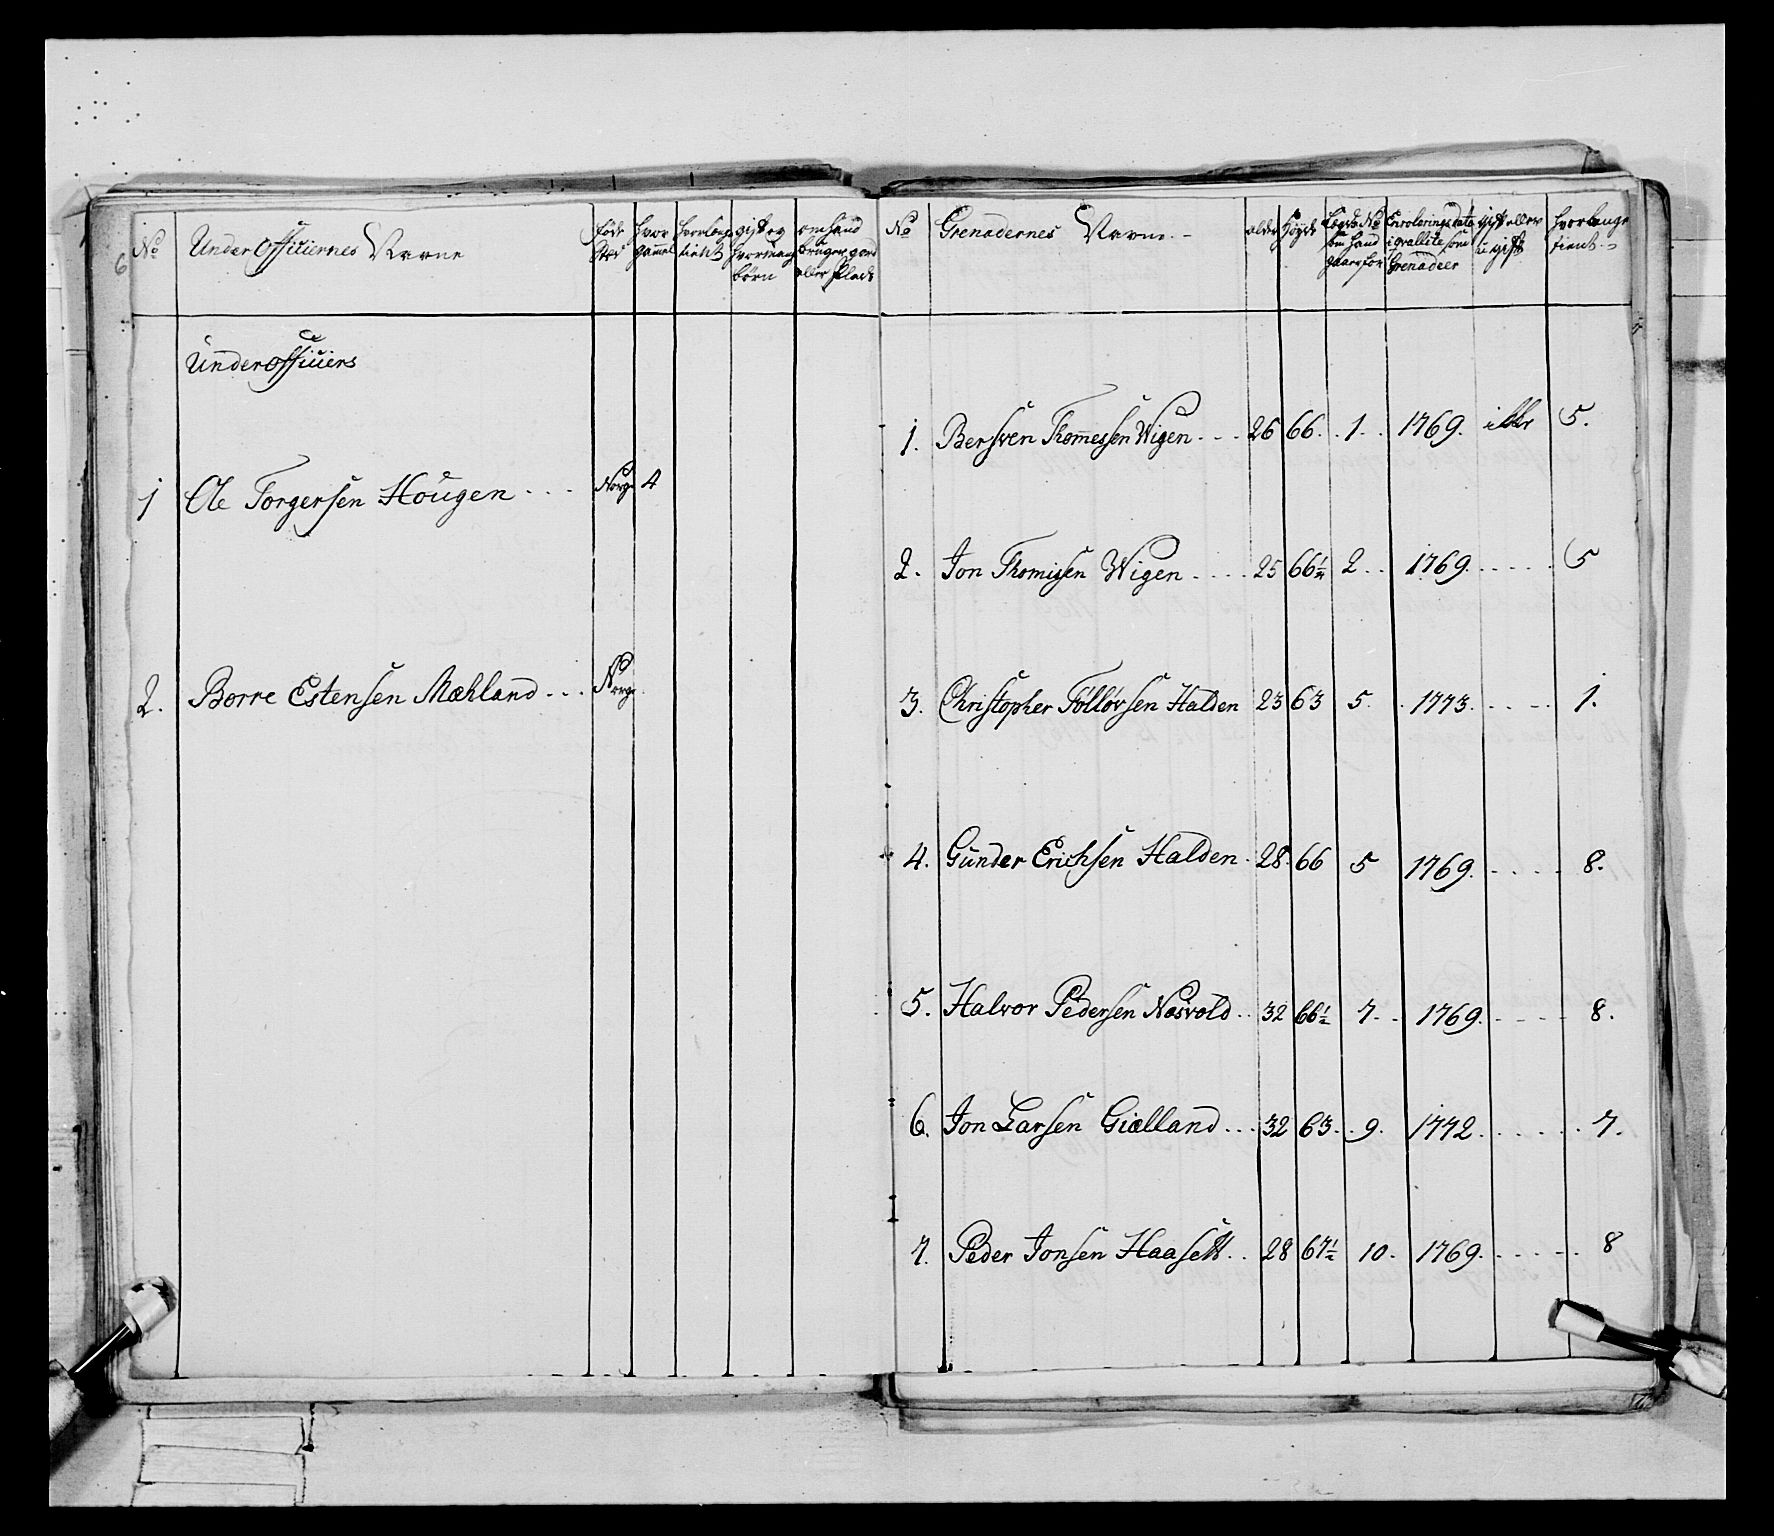 No UnderOfficiernes Navne føde Sted hvor gammel hvorlenge tient gift og hvormange børn om hand bruger gard eller Plads
Underofficiers
1 Ole Torgersen Hougen . . . Norge 4
2. Borre Estensen Mæhland . . . Norge
No Grenadernes Navne. alder høyde Legds No som hand gaar for Enrolerings data i qvallite som Grenadeer gift eller ugift hvorlenge tient.
1. Bersven Thommessen Wigen . . . 26 66. . 1 . . 1769. ikke 5.
2. Jon Thomissen Wigen . . . . 25 66½ 2 . . 1769. . . . . . 5
3. Christopher Tølløvsen Halden 23 63 5. . 1773. . . . . 1.
4. Gunder Erichsen Halden. 28. 66 5 1769. . . . . 8.
5. Halvor Pedersen Næsvold . . 32 66½ 7 . . 1769. . . . . 8.
6. Jon Larsen Giælland . . . 32 63. . 9. 1772. . . . . . 7.
7. Peder Jonsen Haasett . . 28 67½ 10. 1769. . . . . . 8